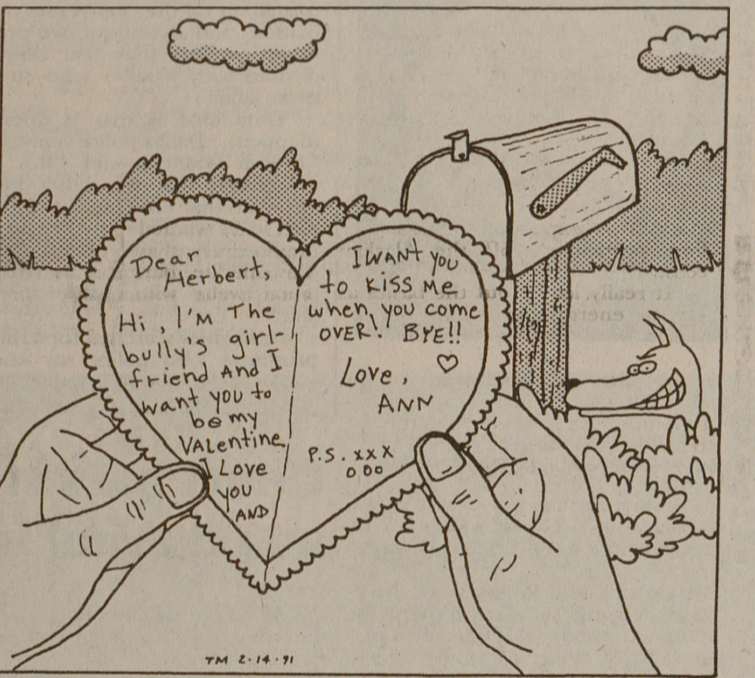 Dear
Herbert,
Hi, I'm The
bully's girl-
friend AND I
want you to
be my
VALentine
I Love
you
AND
I WANT you
to KISS Me
when, you come
OVER! BYE!!
Love,
ANN
P.S. xxx
ooo
TM 2·14·91